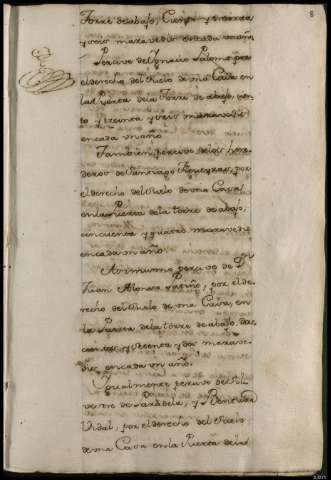 8
Torre de abajo, Ciento y treinta
y seis maravedis en cada un año.
Percive de Ignacio Palomo por
el derecho del Suelo de una Casa en
la Puerta de la Torre de abajo, cien
to y treinta y seis maravedis
en cada un año.
Tambien percive de los here
deros de Santiago por
el derecho del Suelo de una Casa
en la Puerta de la torre de abajo,
cincuenta y quatro maravedis
en cada un año.
Asimismo percive de Dn
Juan Alonso Patiño, por el de
recho del Suelo de una Casa, en
la Puerta de la torre de abajo, dos
cientos y setenta y dos marave
dis, en cada un año.
Igualmente percive de Sil
vestre de Parabela, y Bentura
Vidal, por el derecho del Suelo
de una Casa en la Puerta de la